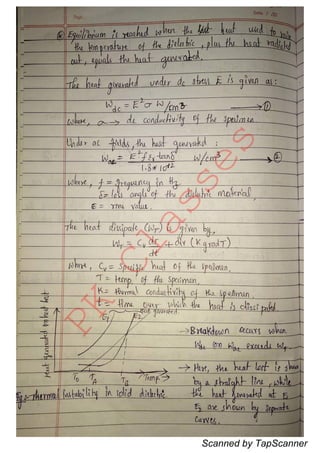 Page
Date
⊛ Equilibrium is reached when the heat used to raise
the temperature of the dielectric, plus the heat radiated
out, equals the heat generated.
The heat generated under dc stress E is given as:
Wdc = E²σ W/cm3 → ①
where, σ → dc conductivity of the specimen
Under ac fields, the heat generated :
Wac = E² f εr tanδ / 1.8 * 10^12 W/cm³ → ②
where, f = frequency in Hz
δ = loss angle of the dielectric material
E = rms value.
The heat dissipate, (WT) is given by,
WT = Cv dT/dt + div (K grad T)
where, Cv = Specific heat of the specimen,
T = temp of the specimen
K = thermal conductivity of the specimen
t = time over which the heat is dissipated.
Heat generated or heat lost
E1
E2
heat generated
→ Breakdown occurs when
Wdc (or) Wac exceeds WT.
→ Here, the heat lost is shown
by a straight line, while
the heat generated at E1
E2 are shown by separate
curves.
T0 TA TB Temp. →
Fig:- thermal instability in solid dielectric
PK Classes
Scanned by TapScanner